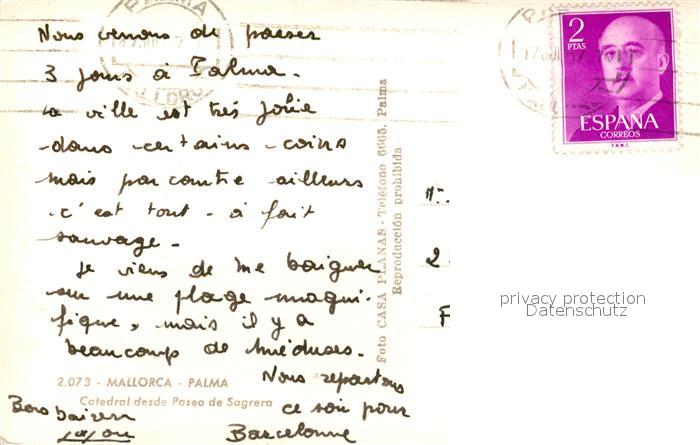 PALMA
MALLORCA
2
PTAS
ESPAÑA
CORREOS
F.N.M.T.
Nous venons de passer
3 jours à Palma.
la ville est très jolie
dans certains coins
mais par contre ailleurs
c'est tout-à fait
sauvage.
Je viens de me baigner
sur une plage magni-
fique, mais il y a
beaucoup de méduses.
Nous repartons
ce soir pour
Barcelonne
Bons baisers
2.073 - MALLORCA - PALMA
Catedral desde Paseo de Sagrera
Foto CASA PLANAS - Teléfono 6665. Palma
Reproducción prohibida
2
F
privacy protection
Datenschutz